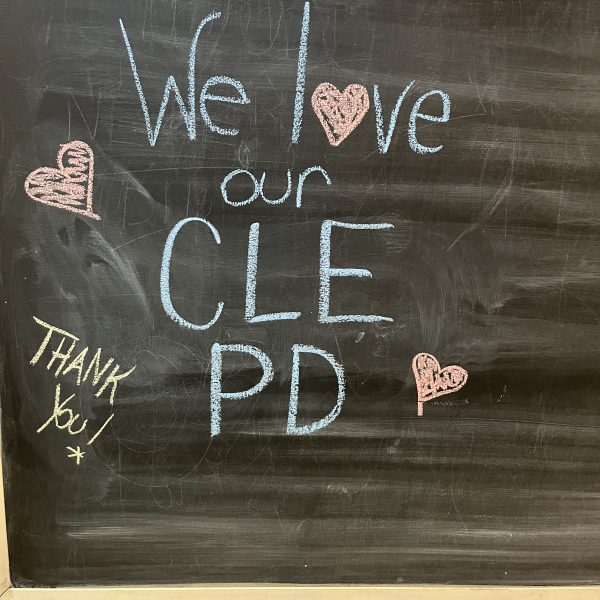 We love
our
CLE
PD
THANK
YOU!